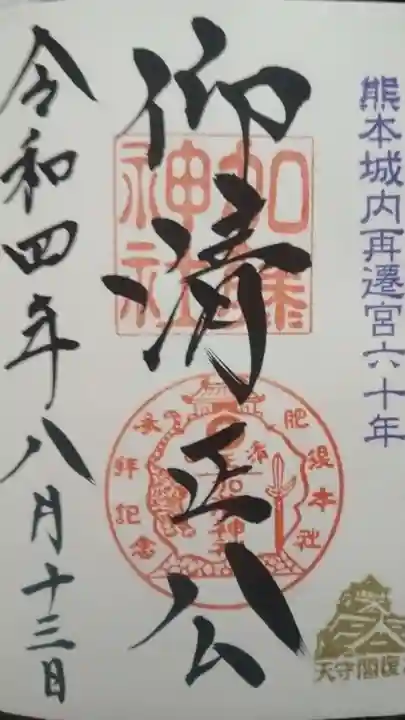 熊本城内再遷宮六十年
仰清正公
加藤神社
肥後本社
参拝記念
天守閣復
令和四年八月十三日